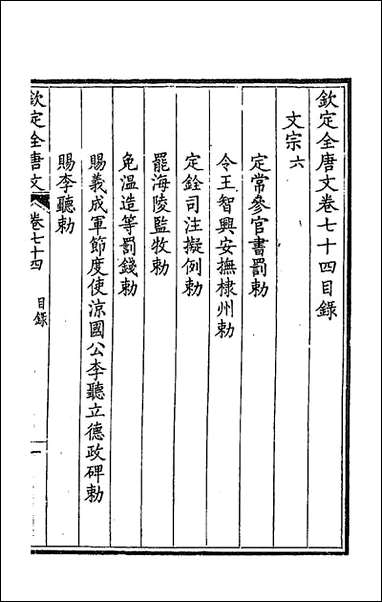 欽定全唐文卷七十四目錄
文宗六
定常參官書罰勅
令王智興安撫棣州勅
定銓司注擬例勅
罷海陵監牧勅
免溫造等罰錢勅
賜義成軍節度使涼國公李聽立德政碑勅
賜李聽勅
欽定全唐文 卷七十四 目錄 一